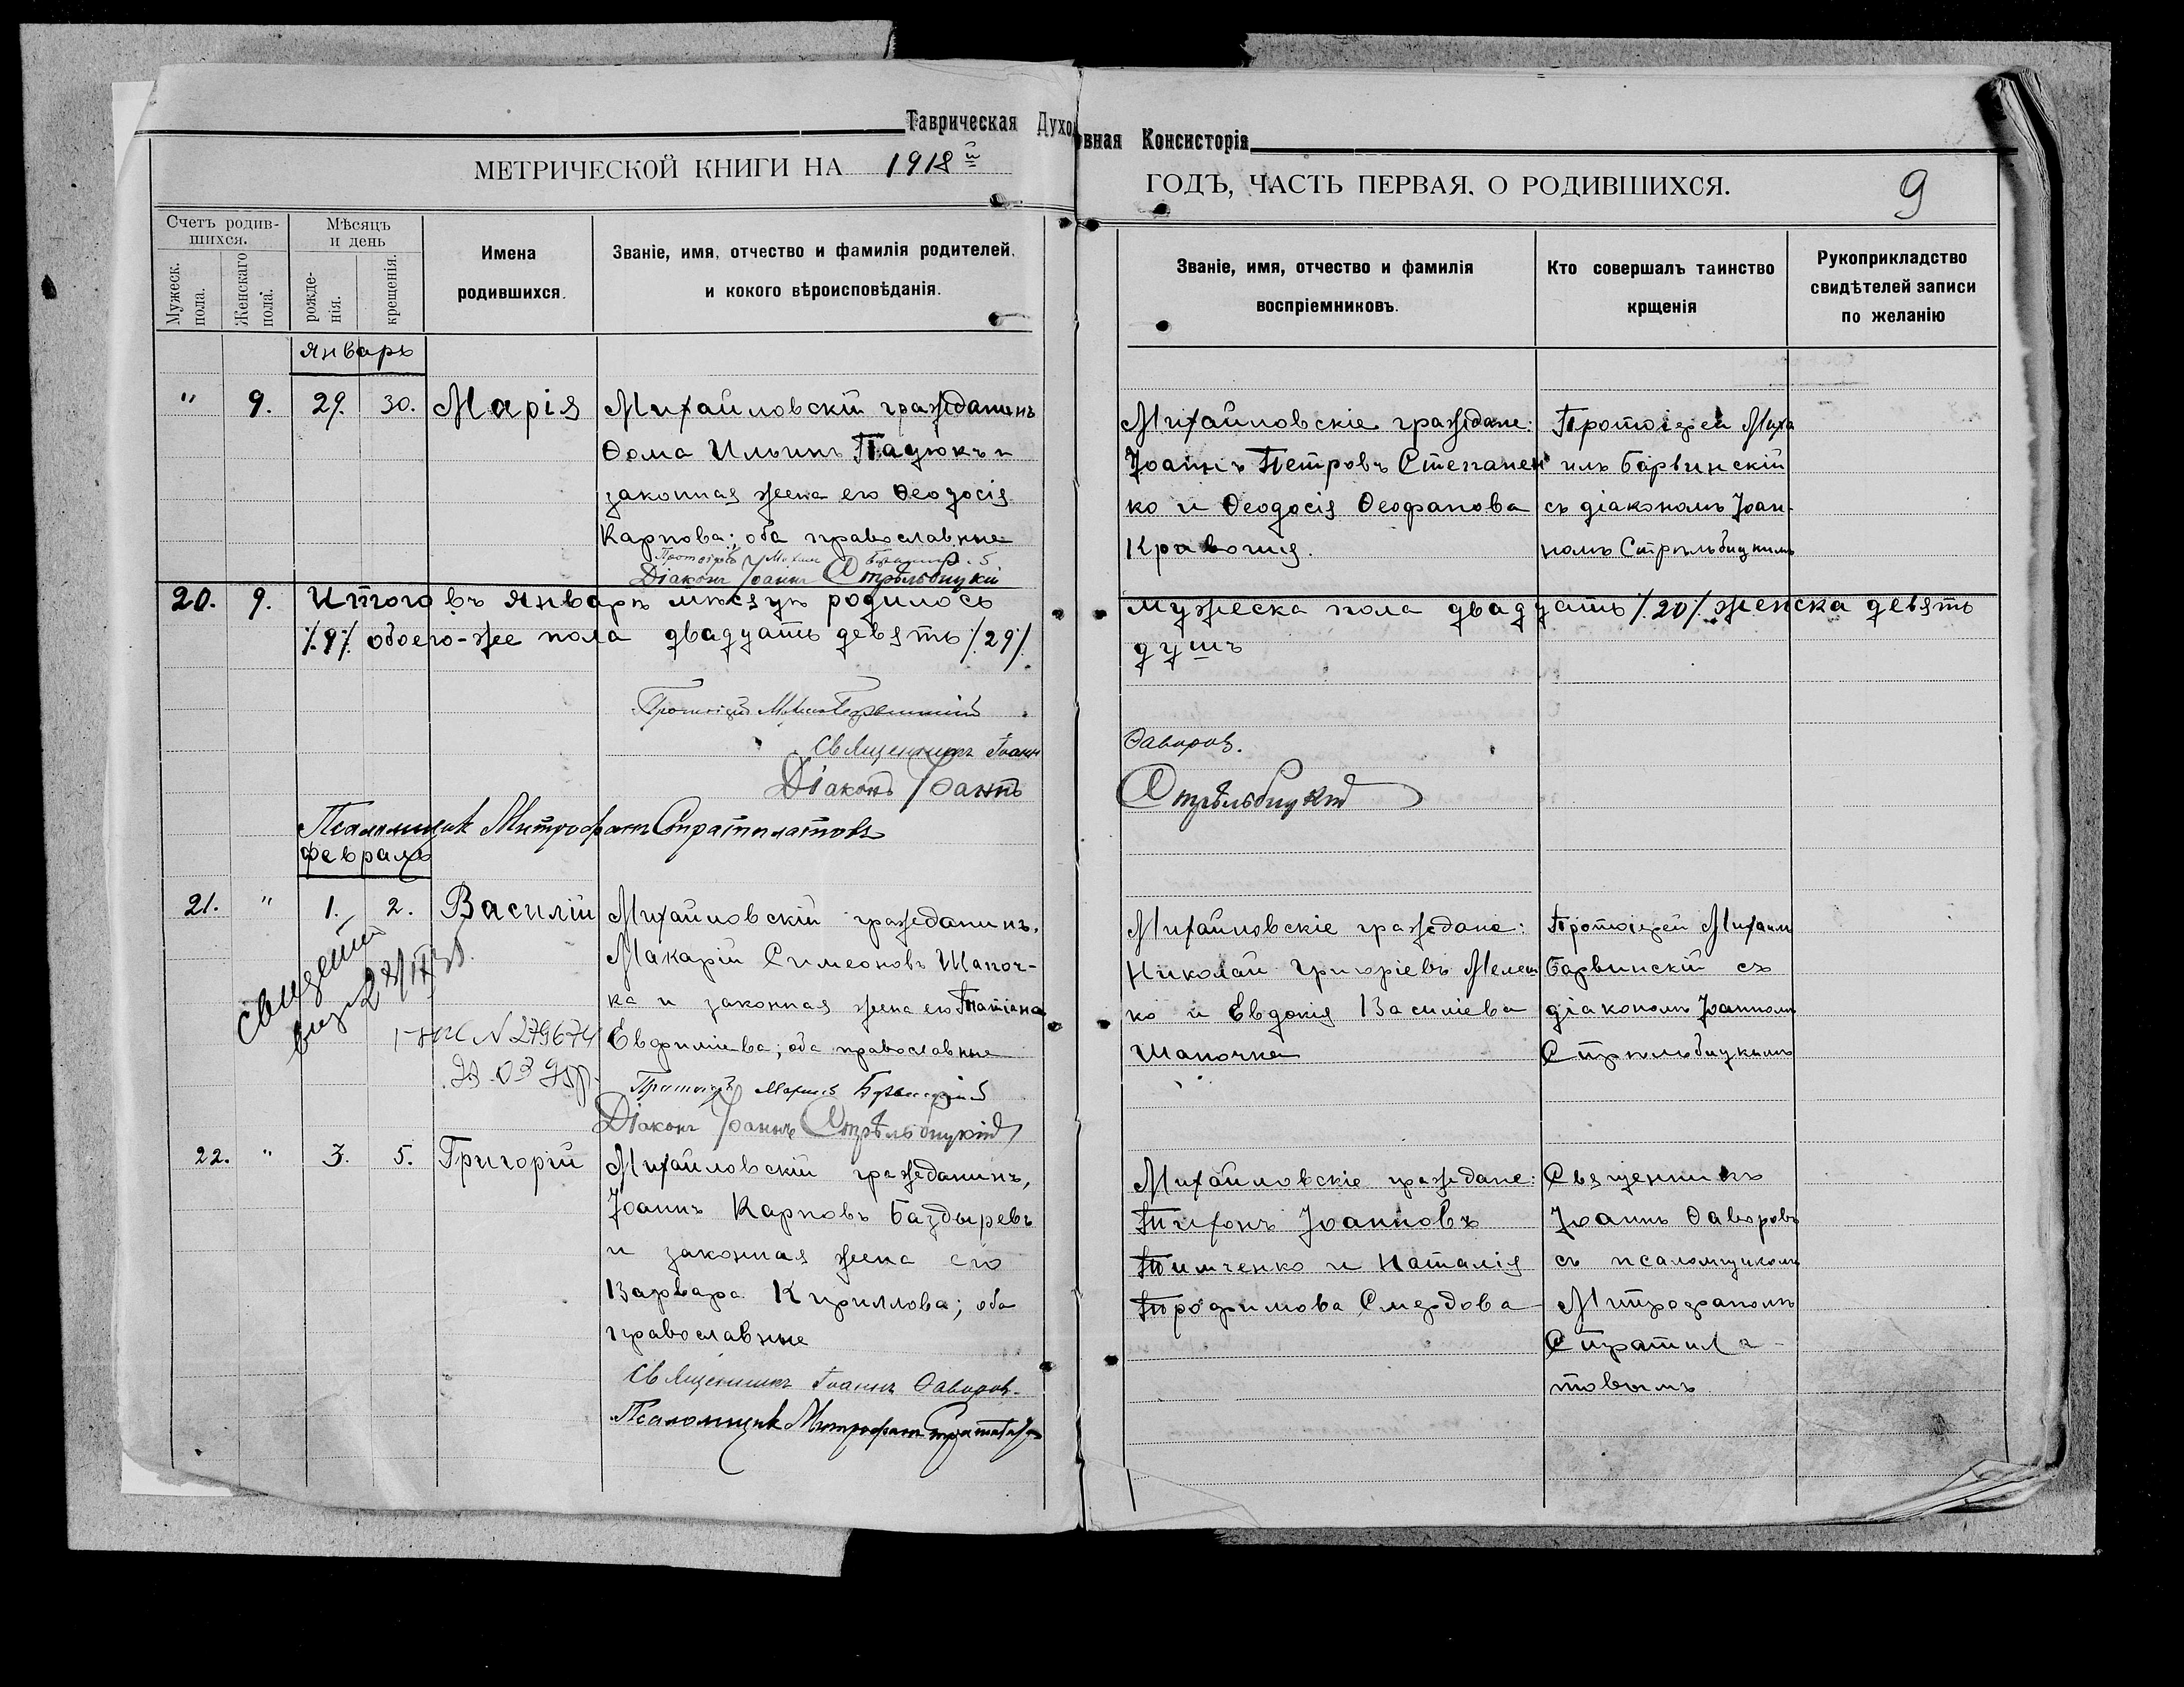 Таврическая Духовная Консисторія
МЕТРИЧЕСКОЙ КНИГИ НА 1918й
ГОДЪ, ЧАСТЬ ПЕРВАЯ, О РОДИВШИХСЯ.
9
Счетъ родив-
шихся.
Мужеск.
пола.
Женскаго
пола.
Мѣсяцъ
и день
рожде-
нія.
крещенія.
Имена
родившихся.
Званіе, имя, отчество и фамилія родителей,
и кокого вѣроисповѣданія.
Званіе, имя, отчество и фамилія
воспріемниковъ.
Кто совершалъ таинство
крщенія
Рукоприкладство
свидѣтелей записи
по желанію
Январь
" 9. 29. 30. Марія
Михайловскій гражданинъ
Ѳома Ильинъ Пацюкъ и
законная жена его Ѳеодосія
Карпова; оба православные
Протоіерей Михаил
Діаконъ Іоаннъ Стрѣльбицкій
Михайловскіе граждане:
Іоаннъ Петровъ Степанен
ко и Ѳеодосія Ѳеофанова
Кравогия.
Протоіерей Миха
илъ Барвинскій
съ діакономъ Іоан-
номъ Стрѣльбицкимъ
20. 9. Итого въ Январѣ мѣсяцѣ родилось мужеска пола двадцать /.20/. женска девять
/.9/. обоего-же пола двадцать девять /.29/. душъ
Протоіерей Михаил Барвинскій
Священникъ Іоанн Ѳаворов.
Діаконъ Іоаннъ Стрѣльбицкій
Псаломщик Митрофан Стратилатовъ
Февраль
21. " 1. 2. Василій
Михайловскій гражданинъ,
Макарій Симеоновъ Шапоч-
ка и законная жена его Татіана
Евфиміева; оба православные
Протоіерей Михаил Барвинскій
Діаконъ Іоаннъ Стрѣльбицкій
Михайловскіе граждане:
Николай Григоріевъ Мелеш
ко и Евдокія Василіева
Шапочка
Протоіерей Михаил
Барвинскій съ
діакономъ Іоанномъ
Стрѣльбицкимъ
N 279674
22. " 3. 5. Григорій
Михайловскій гражданинъ,
Іоаннъ Карповъ Баздыревъ
и законная жена его
Варвара Кириллова; оба
православные
Священникъ Іоаннъ Ѳаворов.
Псаломщик Митрофан Стратилатов
Михайловскіе граждане:
Тихонъ Іоанновъ
Тимченко и Наталія
Трофимова Смердова
Священникъ
Іоаннъ Ѳаворовъ
съ псаломщикомъ
Митрофаномъ
Стратила-
товымъ